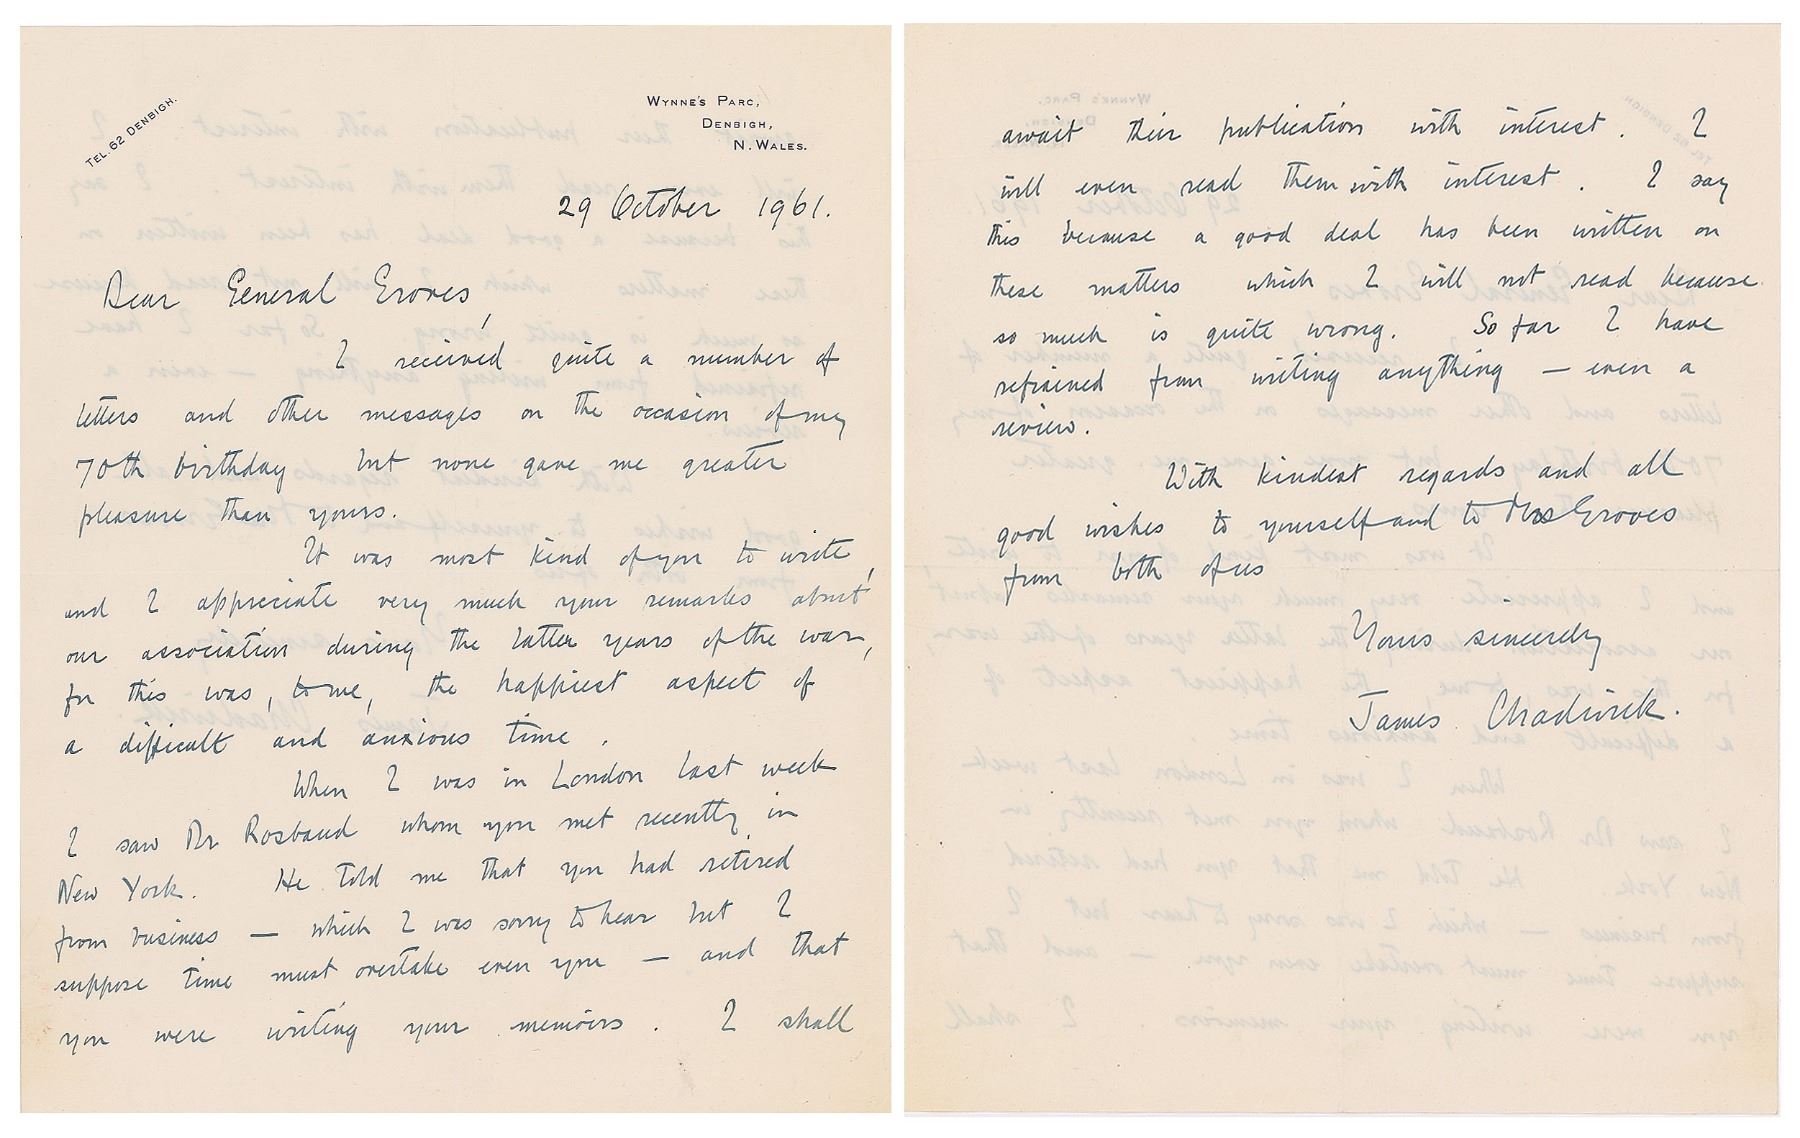 TEL. 62 DENBIGH.
WYNNE'S PARC,
DENBIGH,
N. WALES.
29 October 1961.
Dear General Groves,
I received quite a number of
letters and other messages on the occasion of my
70th birthday but none gave me greater
pleasure than yours.
It was most kind of you to write,
and I appreciate very much your remarks about
our association during the latter years of the war,
for this was, to me, the happiest aspect of
a difficult and anxious time.
When I was in London last week
I saw Dr Rosbaud whom you met recently in
New York. He told me that you had retired
from business — which I was sorry to hear but I
suppose time must overtake even you — and that
you were writing your memoirs. I shall
await their publication with interest. I
will even read them with interest. I say
this because a good deal has been written on
these matters which I will not read because
so much is quite wrong. So far I have
refrained from writing anything — even a
review.
With kindest regards and all
good wishes to yourself and to Mrs Groves
from both of us
Yours sincerely
James Chadwick.